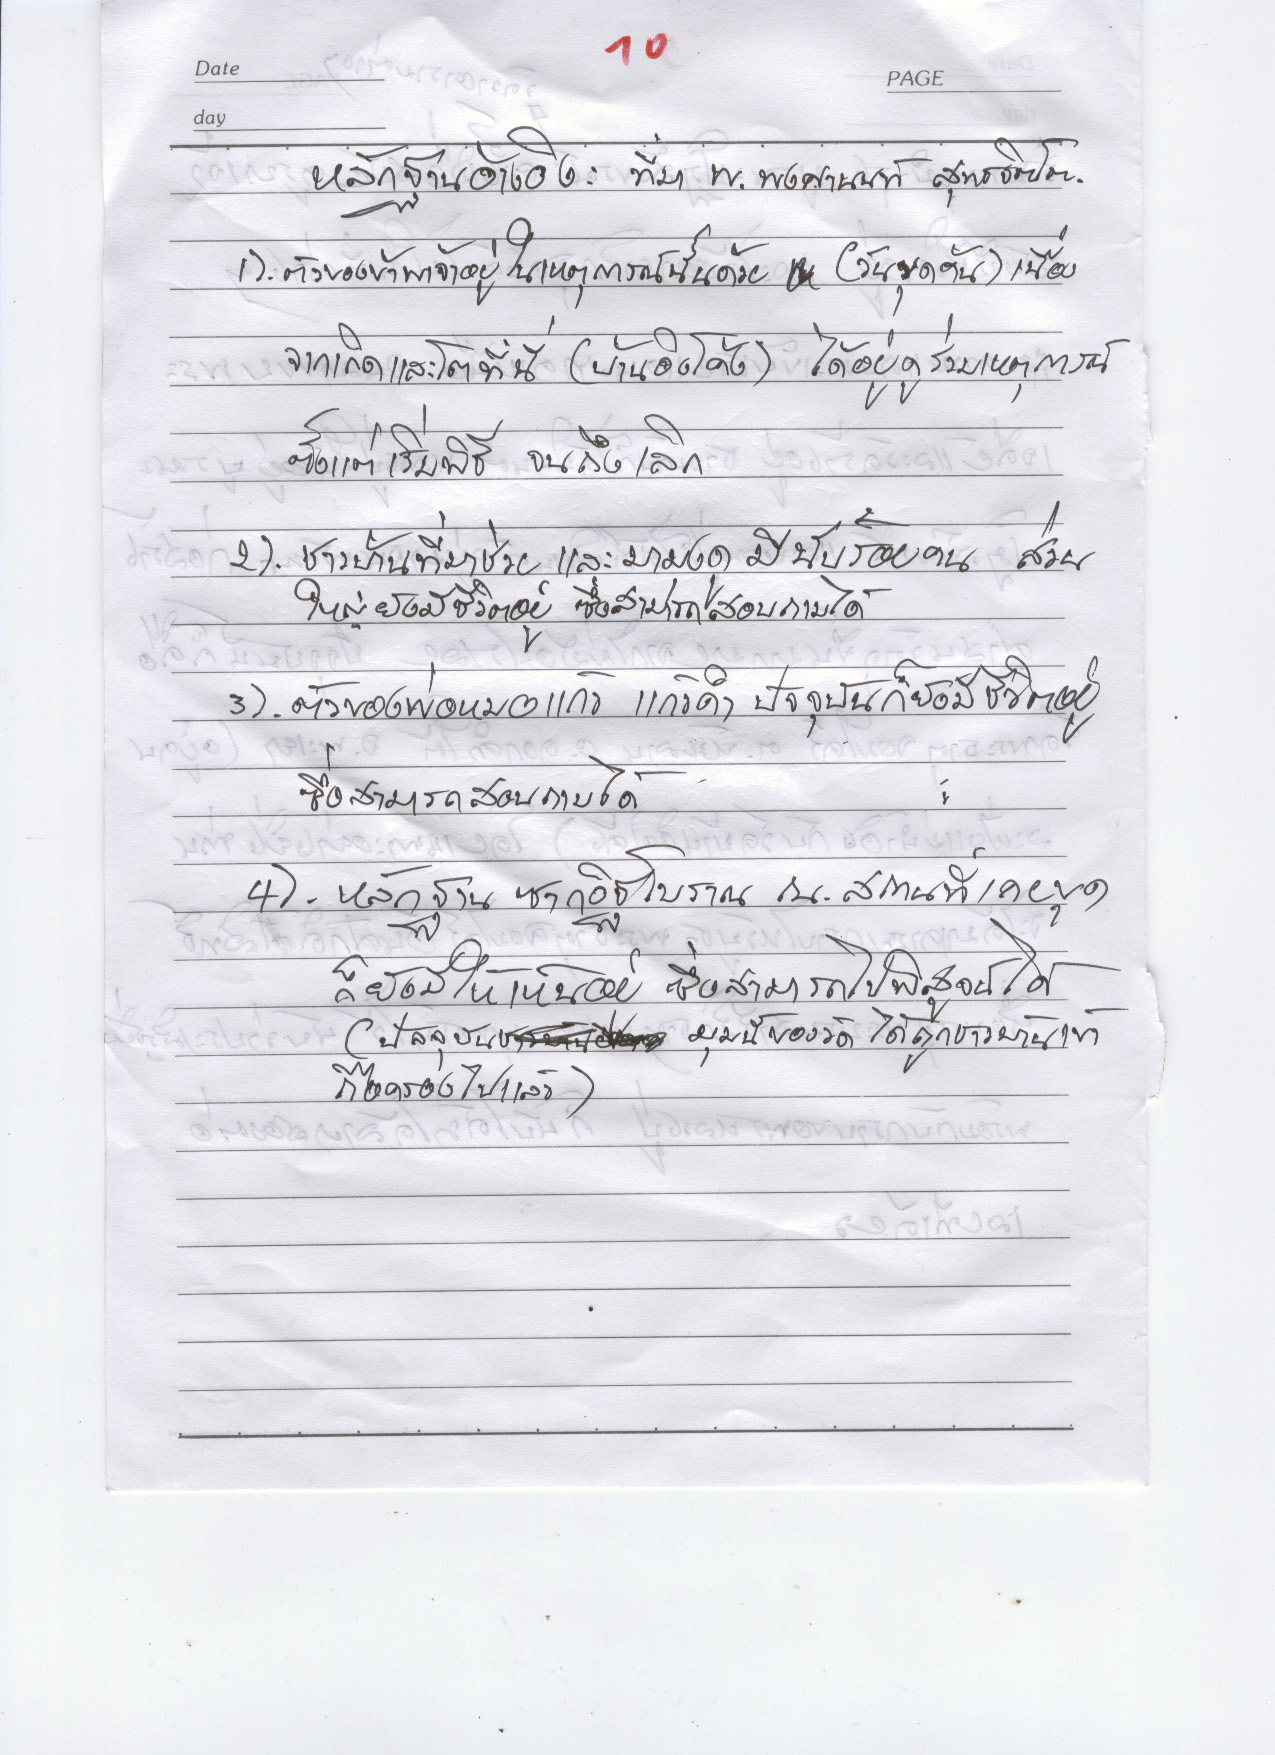 10
Date
PAGE
day
หลักฐานอ้างอิง: ที่มา พ. พงศานนท์
1). ตัวของข้าพเจ้าอยู่ในเหตุการณ์นั้นด้วย (วันขุดค้น) เนื่อง
จากเกิดและโตที่นี่ (บ้านอิงโค้ง) ได้อยู่ดูร่วมเหตุการณ์
ตั้งแต่เริ่มพิธี จนถึงเลิก
2). ชาวบ้านที่มาช่วย และมามุงดู มีนับร้อยคน ส่วน
ใหญ่ยังมีชีวิตอยู่ ซึ่งสามารถสอบถามได้
3). ตัวของพ่อหมอแก้ว แก้วดำ ปัจจุบันก็ยังมีชีวิตอยู่
ซึ่งสามารถสอบถามได้
4). หลักฐาน ซากอิฐโบราณ ณ. สถานที่เคยขุด
ก็ยังมีให้เห็นอยู่ ซึ่งสามารถไปพิสูจน์ได้
(ปัจจุบัน มุมนี้ของวัด ได้ถูกชาวบ้านเข้า
ถือครองไปแล้ว)